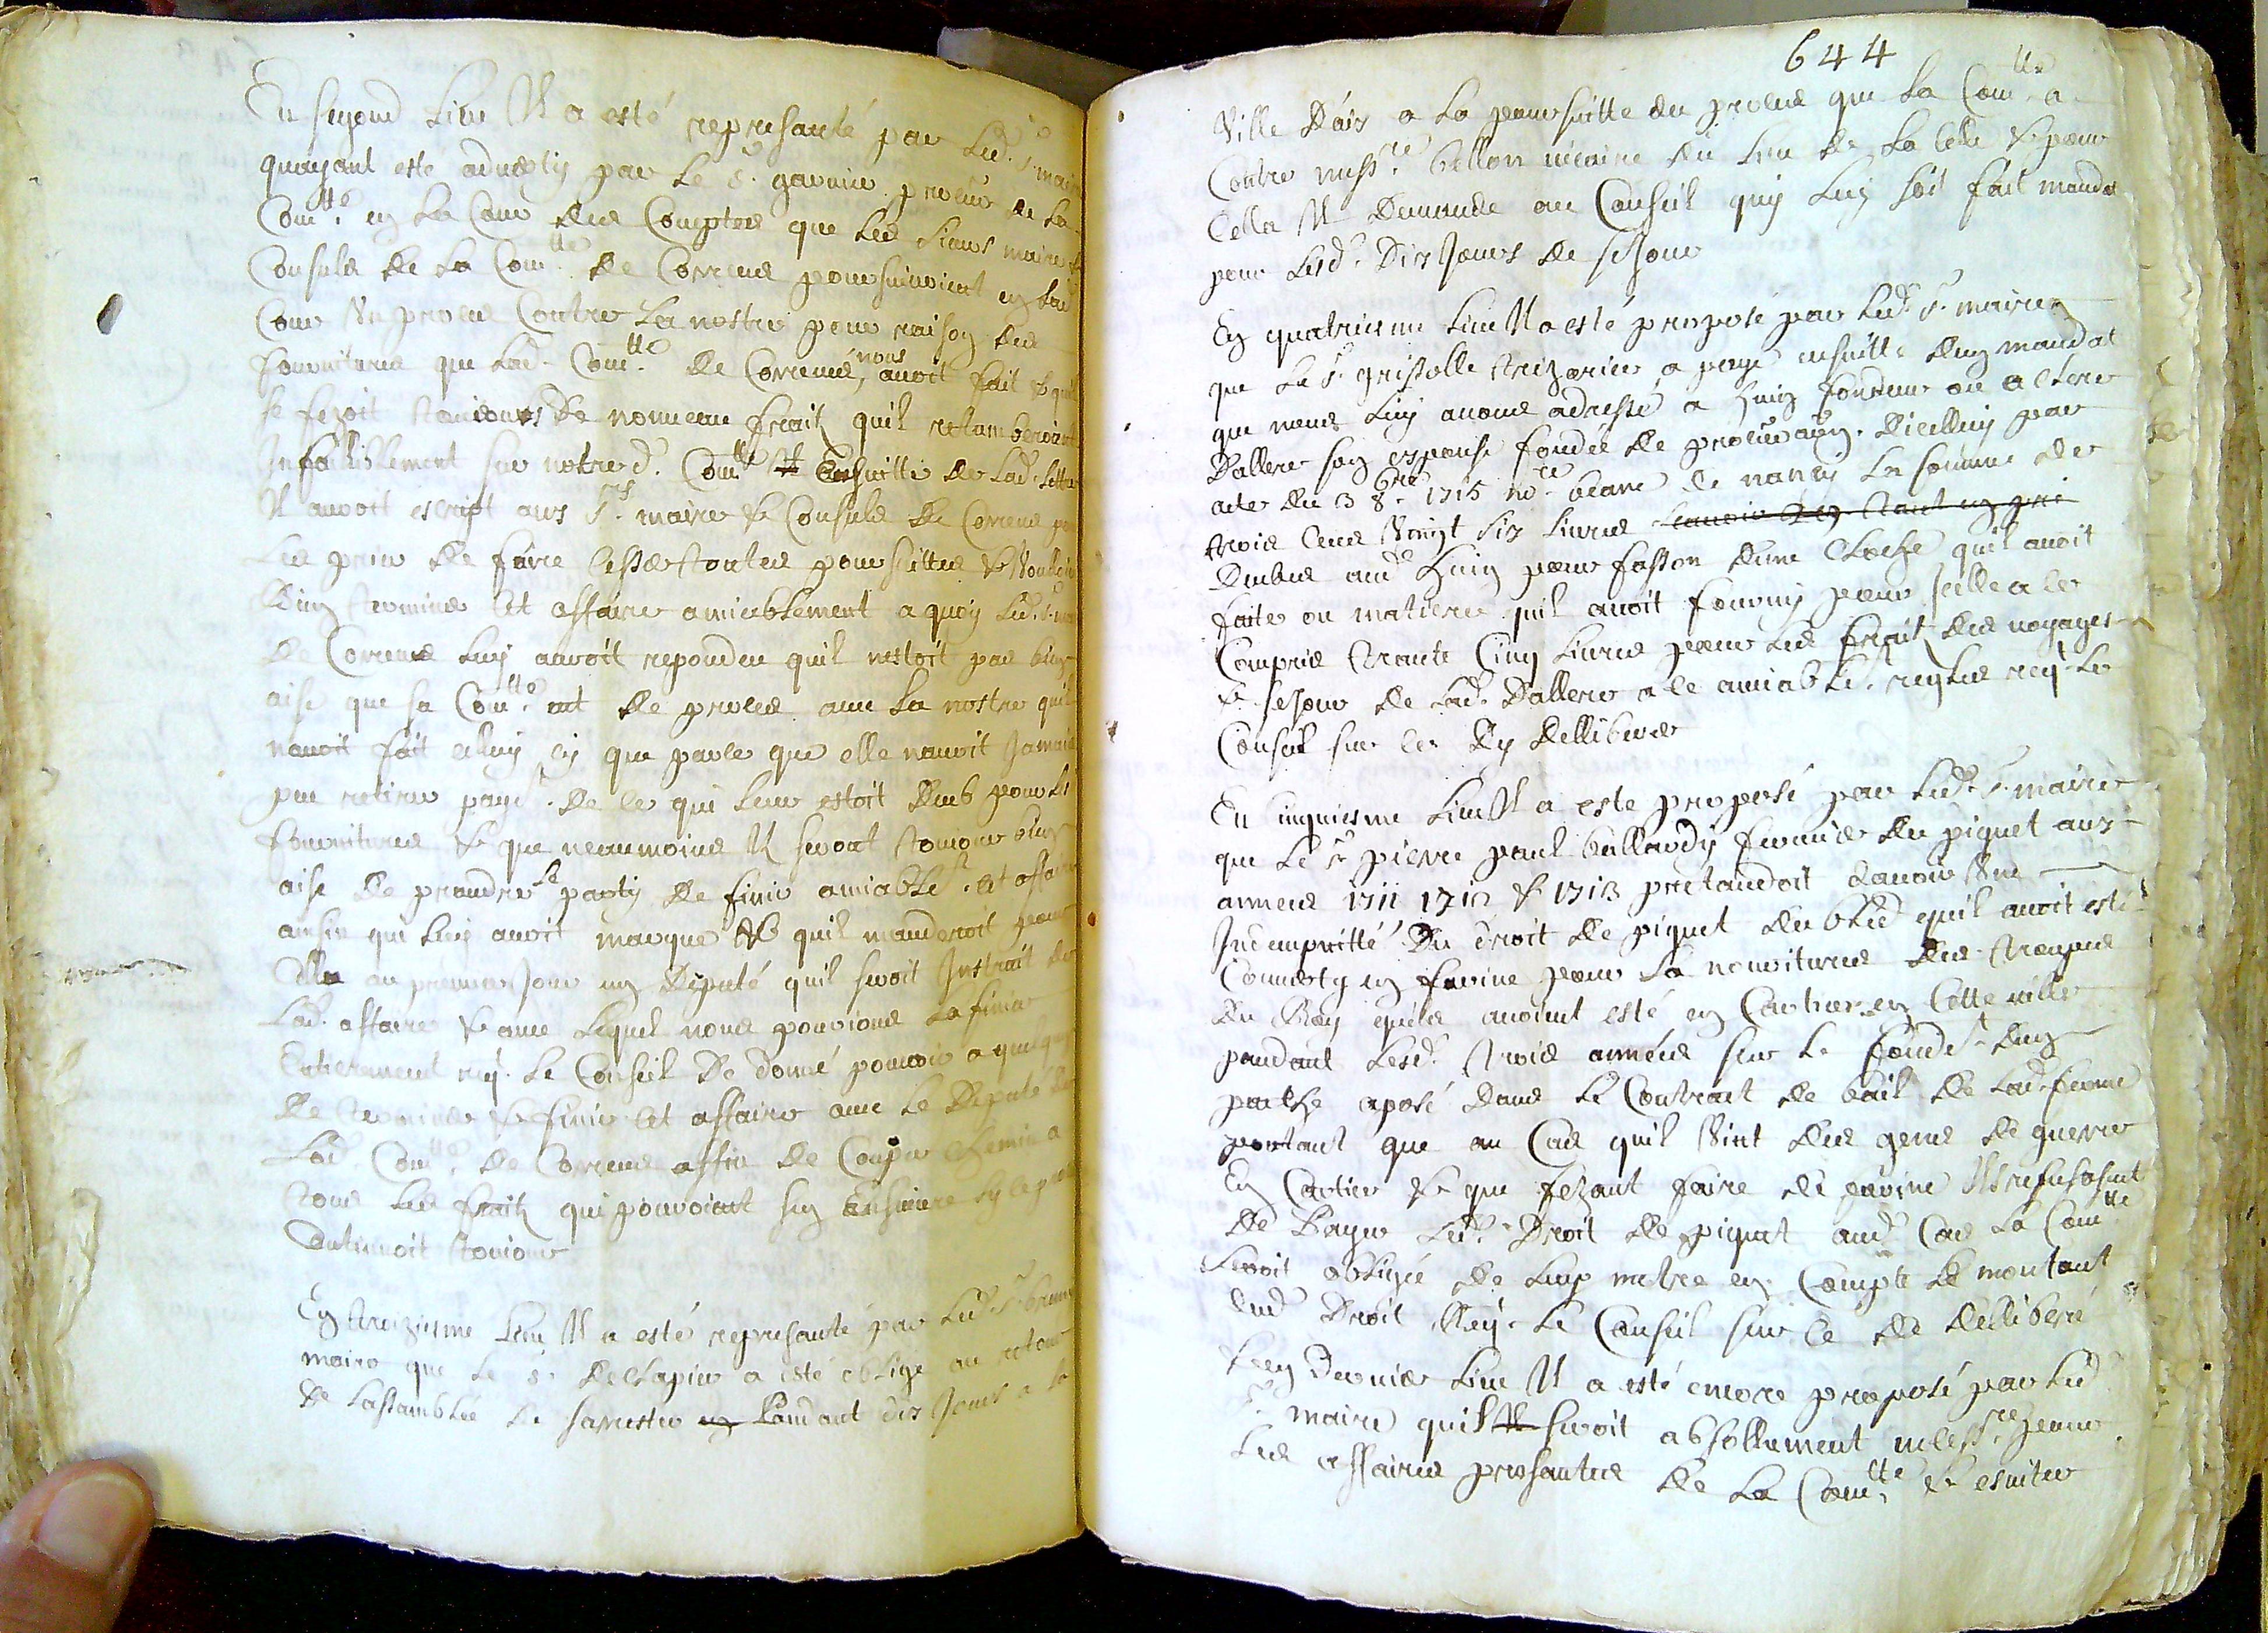 En segond lieu Il a esté represanté par led. Sr. maire
quayant esté advertis par le Sr. garnier procur. de la
Comtté en la Cour des Comptes que les sieurs maire et
Consuls de la Comtté de Correns poursuivoient en lad.
Cour un procès Contre la nostre pour raison des
fournitures que lad. Comtté de Correns, nous avoit fait et quil
se fezoit toujours de nouveau fraix quil retumberoient
Infalliblement sur notred. Comtté Ensuitte de lad. lettre
Il auroit escript aux Srs. maire et Consuls de Correns pour
les prier de faire cesser toutes poursuittes et vouloir
bien terminer cet affaire amiablement a quoy led. Sr. maire
de Correns luy auroit repondeu quil nestoit pas bien
aise que sa Comtté eut de procès avec la nostre quil
navoit fait cluy cy que parce que elle navoit Jamais
peu retirer payt. de ce qui leur estoit deub pour les
fournitures et que neaumoins Il seroit toujour bien
aise de prandre le party de finir amiablet. cet affaire
ainsin que luy avoit marqué et quil manderoit pour
cella au premier Jour un Député quil seroit Instruit de
lad. affaire et avec lequel nous pourions la finir
Entierement req. le Conseil de donné pouvoir a quelquun
de terminer et finir cet affaire avec le Député de
lad. Comtté de Correns affin de Couper chemin a
tous les fraix qui pouroient sen Ensuivre sy le procès
Continuoit toujour
En troizieme lieu Il a esté represanté par led. Sr. brun
maire que le Sr. declapier a esté obligé au retour
de lassamblée de sarrester pandant dix Jours a la
644
Ville d'aix a la poursuitte du procès que la Comtté a
Contre messre. bellon vicaire du lieu de la celle et pour
Cella Il Demande au Conseil quy luy soit fait mandat
pour lesd. Dix Jours de séjour
En quatriesme lieu Il a esté proposé par led. Sr. maire
que le Sr. grisolle trezorier a payé ensuitte d'un mandat
que nous luy avons adressé a huin fondeur ou a claire
Dallere son espouse fondée de procuraon. dicelluy par
acte du 3 8bre 1715 nore. beane de nancy la somme de
trois cens Vingt six livres
Deubue aud. huin pour fasson dune cloche quil avoit
faite ou matiere quil avoit fourny pour icelle a ce
Compris trante Cinq livres pour les fraix des voyages
et sejour de lad. Dallere a ce amiablet. reglés req. le
Conseil sur ce Dy Delliberer
En cinquiesme lieu Il a esté proposé par led. Sr. maire
que le Sr. pierre paul ballardy fermier du piquet aux
annees 1711 1712 et 1713 prétandoit davoir une
Indempnitté Du droit de piquet du bled quil avoit esté
Converty en farine pour la nourriture des troupes
du Roy quils avoint esté en Cartier en Cette ville
pandant lesd. trois années sur le fondt. dun
pacthe aposé dans le Contrait de bail de lad. ferme
portant que au Cas quil Vint des gens de guerre
En Cartier et que fezant faire de farine Ils refusasint
De Payer led. Droit de piquet aud. Cas la Comtté
Seroit obligée de luy metre en Compte le montant
dud. Droit Req. le Conseil sur ce de delliberé
Et en Dernier lieu Il a esté encore proposé par led.
Sr. maire quil seroit absollument necessre. pour
les affaires presantes de la Comtté et esviter